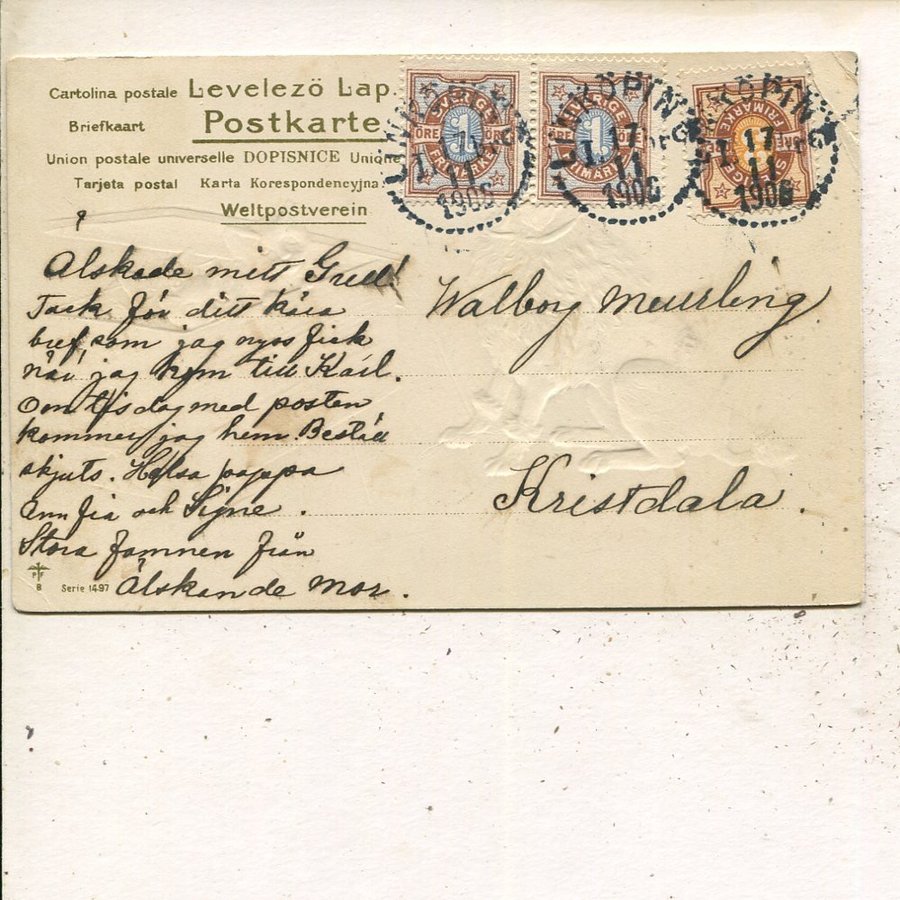 Cartolina postale Levelező Lap.
Briefkaart Postkarte
Union postale universelle DOPISNICE Unione
Tarjeta postal Karta Korespondencyjna
Weltpostverein
SVERIGE
1 ÖRE 1 ÖRE
FRIMÄRKE
SVERIGE
1 ÖRE 1 ÖRE
FRIMÄRKE
SVERIGE
ÖRE
FRIMÄRKE
LINKÖPING
17
11
1906
LINKÖPING
17
11
1906
KÖPING
17
11
1906
Älskade mitt Gull!
Tack för ditt kära
bref som jag nyss fick
när jag kom till Karl.
Om tisdag med posten
kommer jag hem. Beställ
skjuts. Helsa pappa
Ann fia och Signe.
Stora famnen från
Älskande Mor.
Walborg Meurling
Kristdala.
PF
B Serie 1497